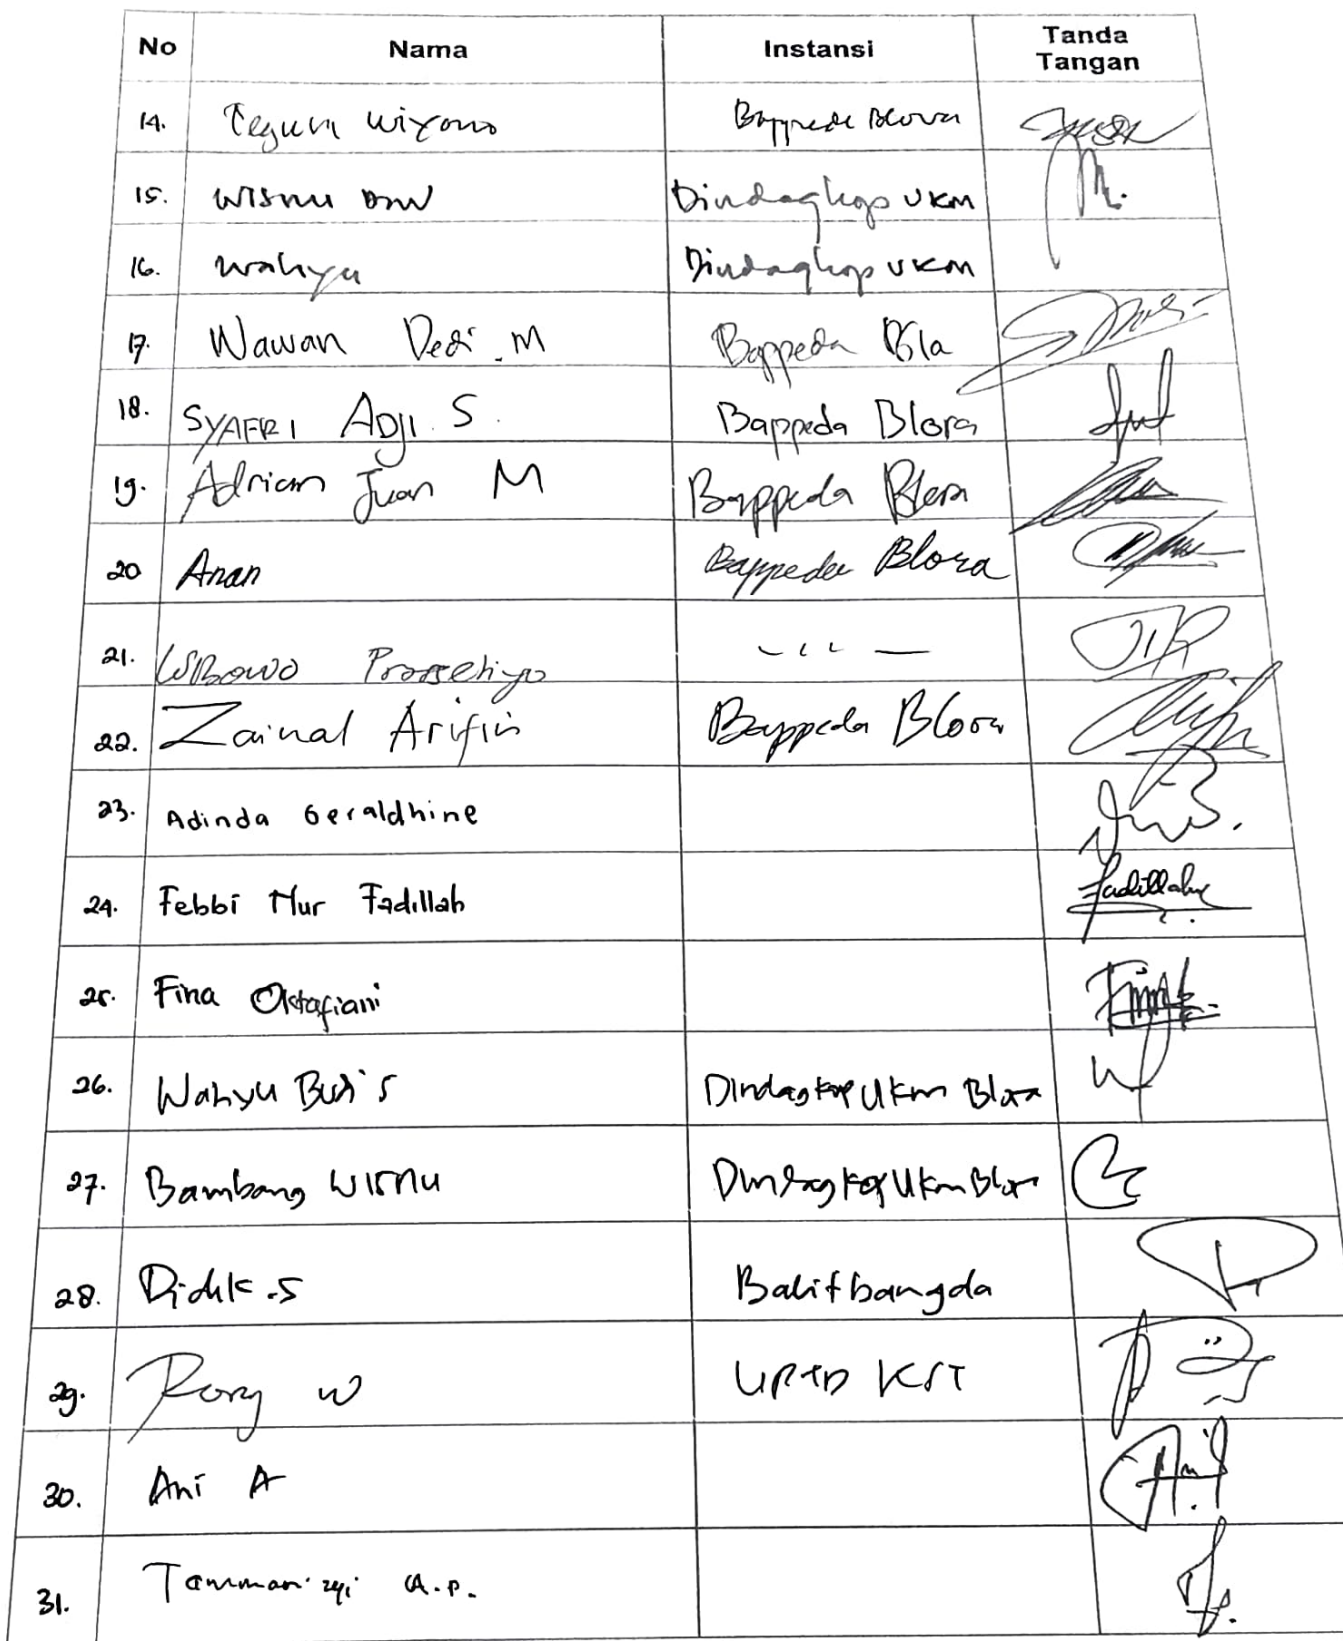 No Nama Instansi Tanda Tangan
14. Teguh Wiyono Bappeda Blora
15. Wisnu DW Dindagkop UKM
16. Wahyu Dindagkop UKM
17. Wawan Dedi . M Bappeda Bla
18. SYAFRI ADJI. S. Bappeda Blora
19. Adrian Juan M Bappeda Blora
20 Anan Bappeda Blora
21. Wibowo Prasetiyo
22. Zainal Arifin Bappeda Blora
23. Adinda Geraldhine
24. Febbi Nur Fadillah Fadillah
25. Fina Oktafiani
26. Wahyu Budi S Dindagkop UKM Blora
27. Bambang Wisnu Dindagkop UKM Blora
28. Didik .S Balitbangda
29. Rony W UPTD KST
30. Ani A
31. A.P.